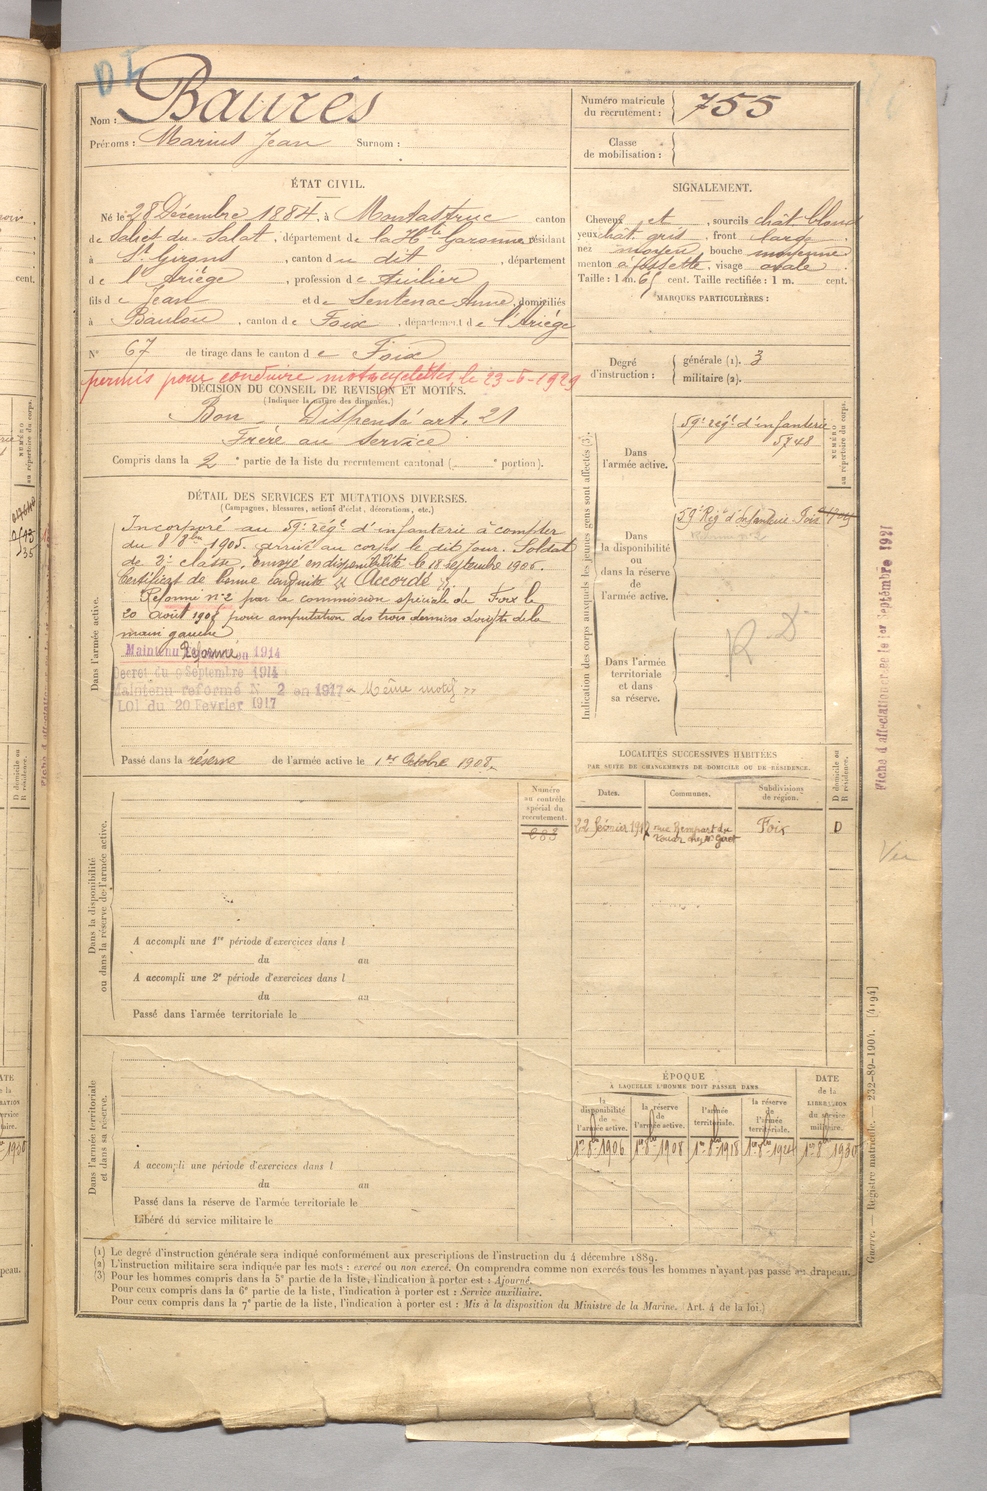 Nom : Baurès
Prénoms : Marius Jean Surnom :
Numéro matricule du recrutement : 755
Classe de mobilisation :
ÉTAT CIVIL.
Né le 28 Décembre 1884, à Montastruc canton
de Saliès du Salat, département de la Hte Garonne, résidant
à St Girons, canton du dit, département
de l'Ariège, profession de
fils de Jean et de Sentenac Anne, domiciliés
à Baulou, canton de Foix, département de l'Ariège
N° 67 de tirage dans le canton de Foix
permis pour conduire motocyclettes le 23-5-1929
DÉCISION DU CONSEIL DE REVISION ET MOTIFS.
(Indiquer la nature des dispenses.)
Bon. Dispensé art. 21
Frère au service
Compris dans la 2e partie de la liste du recrutement cantonal ( e portion).
SIGNALEMENT.
Cheveux et , sourcils chât. blond
yeux chât. gris, front large
nez moyen, bouche moyenne
menton à fossette, visage ovale
Taille : 1 m. 65 cent. Taille rectifiée : 1 m. cent.
MARQUES PARTICULIÈRES :
Degré d'instruction : générale (1). 3
militaire (2).
DÉTAIL DES SERVICES ET MUTATIONS DIVERSES.
(Campagnes, blessures, actions d'éclat, décorations, etc.)
Dans l'armée active.
Incorporé au 59e régt d'infanterie à compter
du 8 8bre 1905. arrivé au corps le dit jour. Soldat
de 2e classe. Envoyé en disponibilité le 18 septembre 1906.
Certificat de bonne conduite « Accordé ».
Réformé n°2 par la commission spéciale de Foix le
20 août 1908 pour amputation des trois derniers doigts de la
main gauche
Maintenu Réformé en 1914
Décret du 9 Septembre 1914
Maintenu reformé N° 2 en 1917 « Même motif »
LOI du 20 Fevrier 1917
Passé dans la réserve de l'armée active le 1er Octobre 1908.
Indication des corps auxquels les jeunes gens sont affectés (3).
NUMÉRO au répertoire du corps.
Dans l'armée active.
59e régt d'infanterie
5748
Dans la disponibilité ou dans la réserve de l'armée active.
59e Régt d'Infanterie Foix
Réformé n°2
Dans l'armée territoriale et dans sa réserve.
R D
LOCALITÉS SUCCESSIVES HABITÉES
PAR SUITE DE CHANGEMENTS DE DOMICILE OU DE RÉSIDENCE.
Dates. Communes. Subdivisions de région. D domicile ou R résidence.
22 février 1912 rue Rempart du Foix D
Numéro au contrôle spécial du recrutement.
Dans la disponibilité ou dans la réserve de l'armée active.
A accompli une 1re période d'exercices dans l
du au
A accompli une 2e période d'exercices dans l
du au
Passé dans l'armée territoriale le
Dans l'armée territoriale et dans sa réserve.
A accompli une période d'exercices dans l
du au
Passé dans la réserve de l'armée territoriale le
Libéré du service militaire le
ÉPOQUE
À LAQUELLE L'HOMME DOIT PASSER DANS
la disponibilité de l'armée active. la réserve de l'armée active. l'armée territoriale. la réserve de l'armée territoriale. DATE de la LIBÉRATION du service militaire.
1er 8bre 1906 1er 8bre 1908 1er 8bre 1918 1er 8bre 1924 1er 8bre 1930
(1) Le degré d'instruction générale sera indiqué conformément aux prescriptions de l'instruction du 4 décembre 1889.
(2) L'instruction militaire sera indiquée par les mots : exercé ou non exercé. On comprendra comme non exercés tous les hommes n'ayant pas passé au drapeau.
(3) Pour les hommes compris dans la 5e partie de la liste, l'indication à porter est : Ajourné.
Pour ceux compris dans la 6e partie de la liste, l'indication à porter est : Service auxiliaire.
Pour ceux compris dans la 7e partie de la liste, l'indication à porter est : Mis à la disposition du Ministre de la Marine. (Art. 4 de la loi.)
Fiche d'affectation le 1er Septembre 1921
Vu
Guerre. — Registre matricule. — 232-89-1904. [4194]